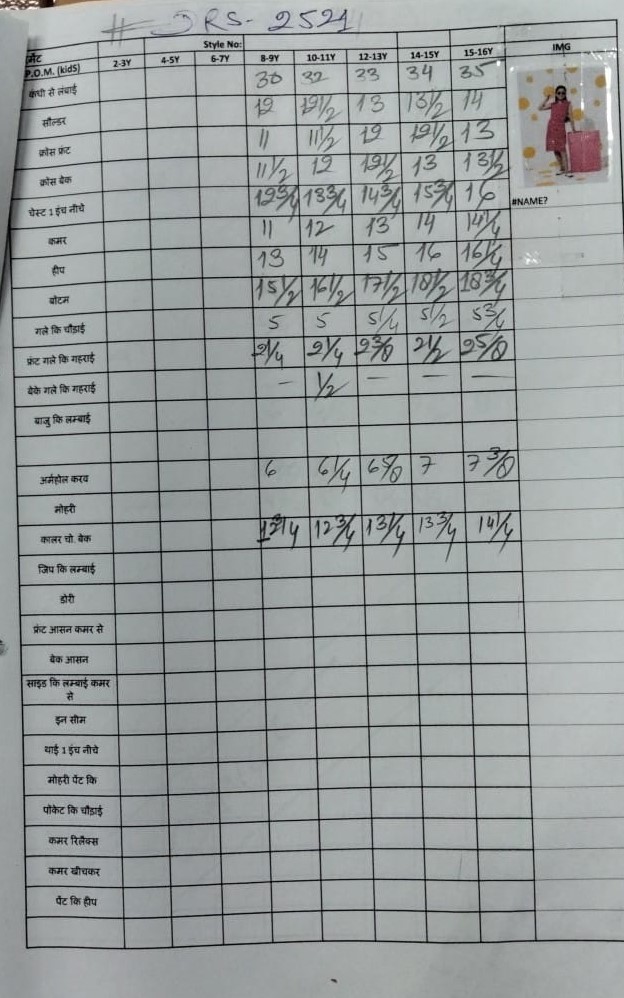 # DRS- 2521
Style No:
मेंट
P.O.M. (kidS) 2-3Y 4-5Y 6-7Y 8-9Y 10-11Y 12-13Y 14-15Y 15-16Y IMG
कंधी से लंबाई 30 32 33 34 35
सौल्डर 12 12 1/2 13 13 1/2 14
क्रोस फ्रंट 11 11 1/2 12 12 1/2 13
क्रोस बेक 11 1/2 12 12 1/2 13 13 1/2
चेस्ट 1 इंच नीचे 12 3/4 13 3/4 14 3/4 15 3/4 16 #NAME?
कमर 11 12 13 14 14 1/4
हीप 13 14 15 16 16 1/4
बोटम 15 1/2 16 1/2 17 1/2 18 1/2 18 3/4
गले कि चौड़ाई 5 5 5 1/4 5 1/2 5 3/4
फ्रंट गले कि गहराई 2 1/4 2 1/4 2 3/8 2 1/2 2 5/8
बेके गले कि गहराई — 1/2 — — —
बाजु कि लम्बाई
अर्महोल करव 6 6 1/4 6 5/8 7 7 3/8
मोहरी
कालर चो. बेक 12 1/4 12 3/4 13 1/4 13 3/4 14 1/4
जिप कि लम्बाई
डोरी
फ्रंट आसन कमर से
बेक आसन
साइड कि लम्बाई कमर
से
इन सीम
थाई 1 इंच नीचे
मोहरी पेंट कि
पोकेट कि चौड़ाई
कमर रिलैक्स
कमर खीचकर
पेंट कि हीप